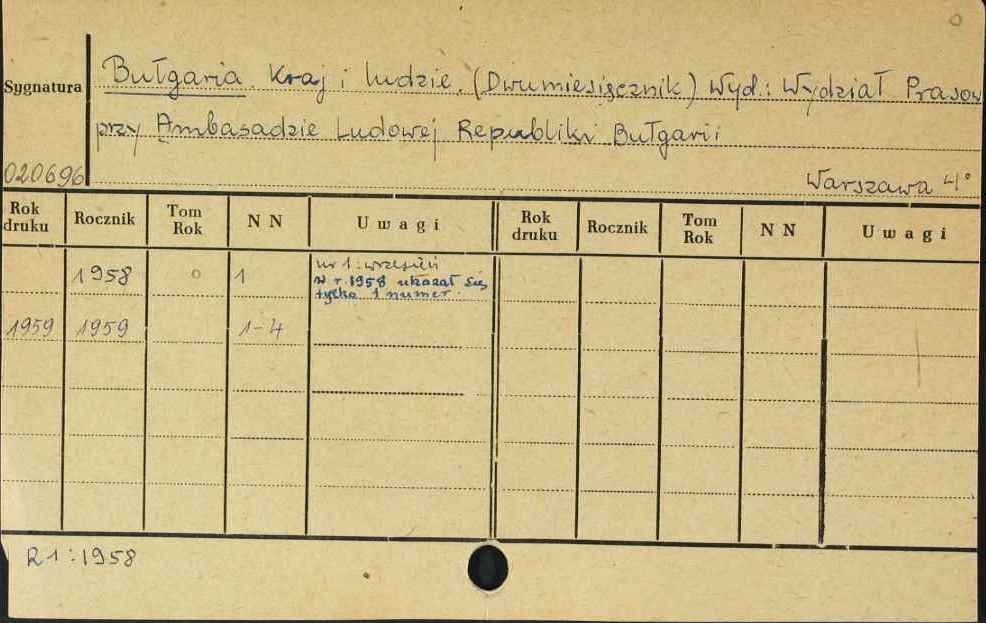 o
Sygnatura
Bułgaria Kraj i ludzie. (Dwumiesięcznik) Wyd.: Wydział Prasow
przy Ambasadzie Ludowej Republiki Bułgarii
020696
Warszawa 4°
Rok druku Rocznik Tom Rok N N Uwagi Rok druku Rocznik Tom Rok N N Uwagi
1958 o 1 nr 1: wrzesień
W r. 1958 ukazał się
tylko 1 numer.
1959 1959 1-4
R 1:1958